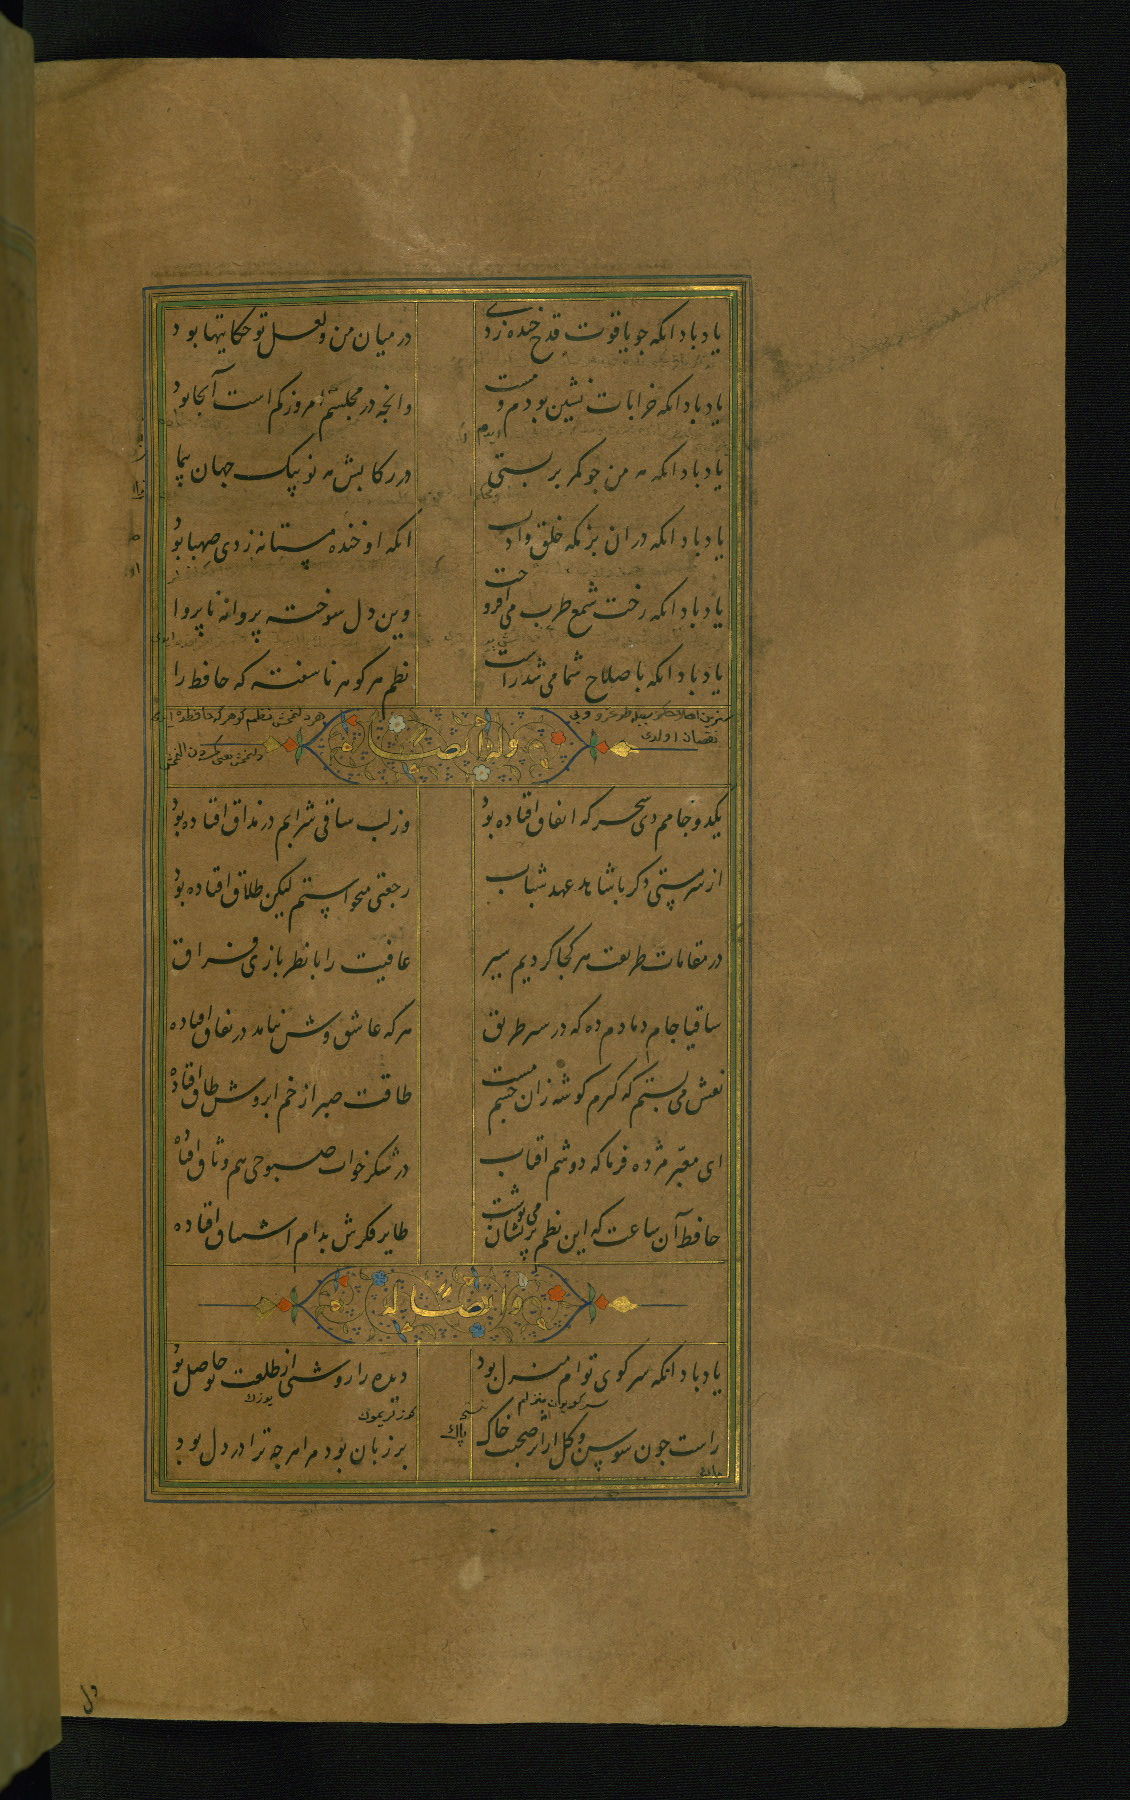 یاد باد انکه جو یاقوت قدح خنده زدی
در میان من و لعل تو حکایتها بود
یاد باد انکه خرابات نشین بودم و مست
وانجه در مجلسم امروز کم است آنجا بود
یاد باد انکه مه من جو کمر بر بستی
در رکابش مه نو پیک جهان پیما
یاد باد انکه در ان بزمکه خلق و ادب
انکه او خنده مستانه زدی صهبا بود
یاد باد انکه رخت شمع طرب می افروخت
وین دل سوخته پروانه ناپروا
یاد باد انکه باصلاح شما می شد راست
نظم هر کوهر ناسفته که حافظ را
وله ایضا
یکدو جامم دی سحر که اتفاق افتاده بود
وز لب ساقی شرابم در مذاق افتاده بود
از سر مستی دکر با شاهد عهد شباب
رجعتی میخواستم لیکن طلاق افتاده بود
در مقامات طریقت هر کجا کردیم سیر
عافیت را با نظر بازی فراق
ساقیا جام دمادم ده که در سیر طریق
هر که عاشق وش نیامد در نفاق افتاده
نقش می بستم که کیرم کوشه زان جشم مست
طاقت صبر از خم ابروش طاق افتاده
ای معبر مژده فرما که دوشم افتاب
در شکر خواب صبوحی هم وثاق افتاد
حافظ آن ساعت که این نظم پریشان می نوشت
طایر فکرش بدام اشتیاق افتاده
وایضا له
یاد باد انکه سر کوی توام منزل بود
دیده را روشنی از طلعت تو حاصل بود
راست جون سوسن و کل از اثر صحبت خاک
پاک
بر زبان بود مرا هر جه ترا در دل بود
دل